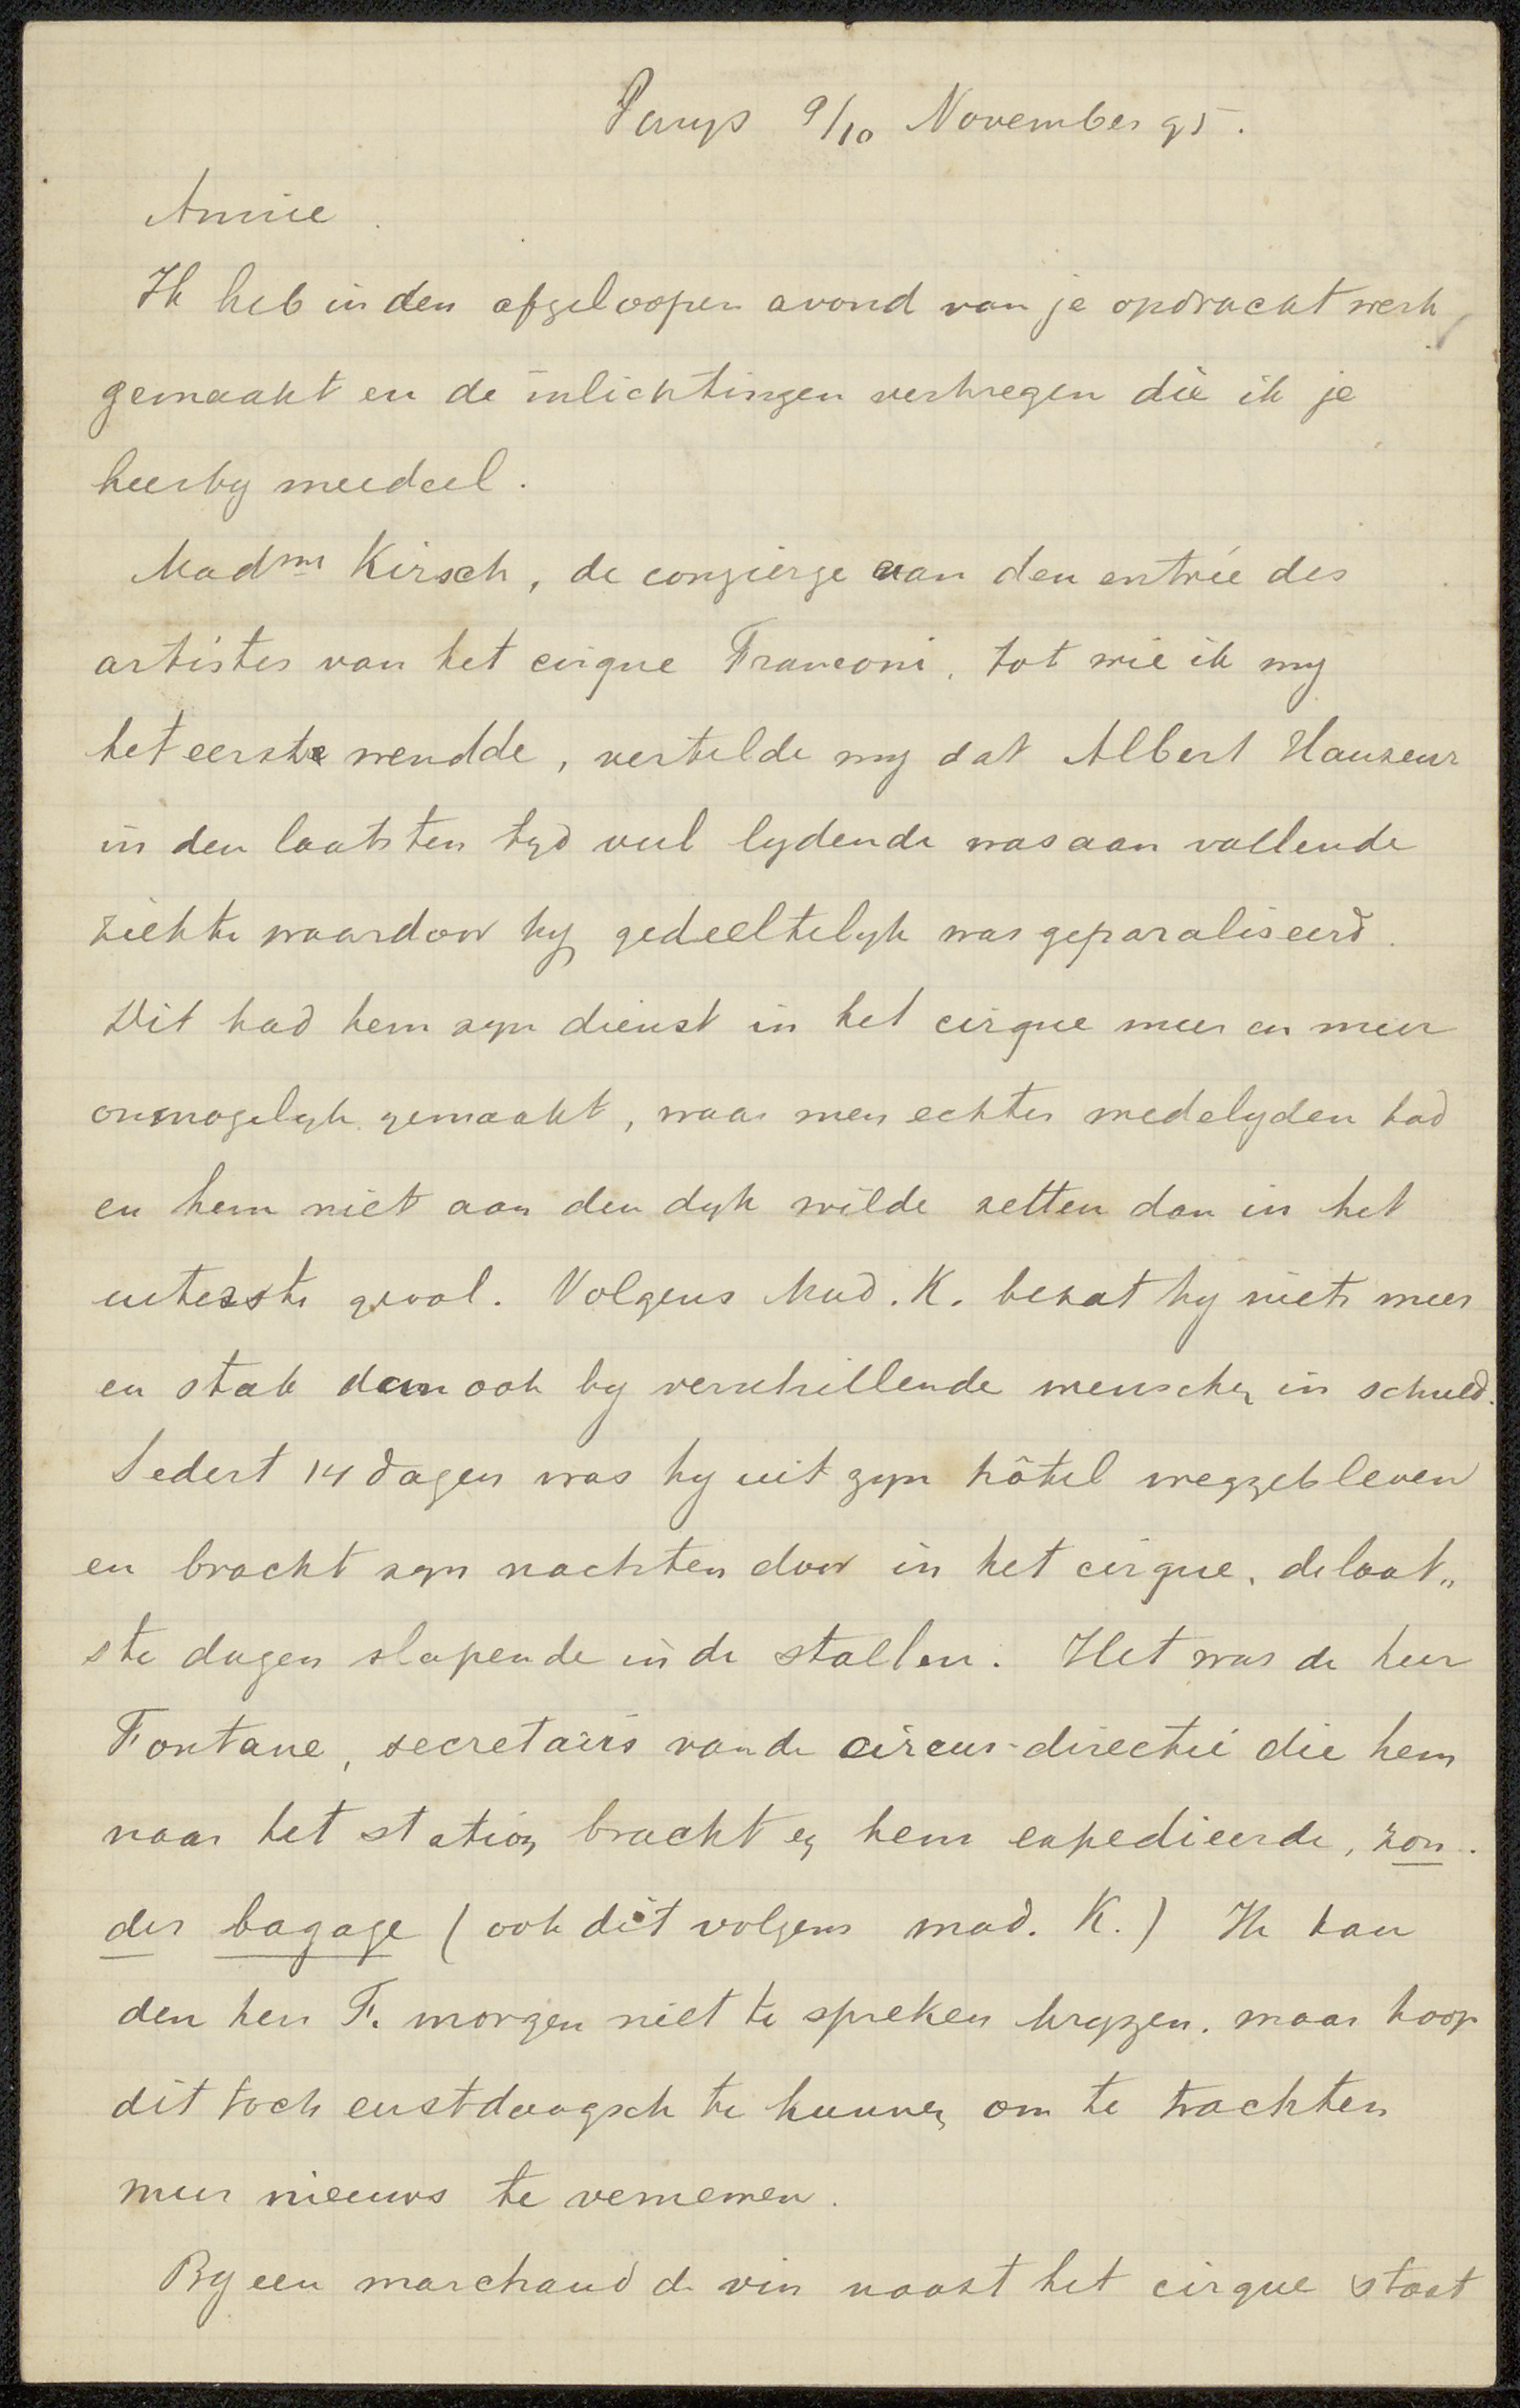 Parys 9/10 November 95.
Annie.
Ik heb in den afgeloopen avond van je opdracht werk
gemaakt en de inlichtingen verkregen die ik je
hierby meedeel.
Madme Kirsch, de conçierge van den entrée des
artistes van het cirque Franconi, tot wie ik my
het eerste wendde, vertelde my dat Albert Hauzeur
in den laatsten tyd veel lydende was aan vallende
ziekte waardoor hy gedeeltelyk was geparaliseerd.
Dit had hem zyn dienst in het cirque meer en meer
onmogelyk gemaakt, waar men echter medelyden had
en hem niet aan den dyk wilde zetten dan in het
uiterste geval. Volgens Mad. K. bezat hy niets meer
en stak dan ook by verschillende menschen in schuld.
Sedert 14 dagen was hy uit zyn hôtel weggebleven
en bracht zyn nachten door in het cirque, de laat„
ste dagen slapende in de stallen. Het was de heer
Fontane, secretairis van de circus-directie die hem
naar het station bracht en hem expedieerde, zon-
der bagage (ook dit volgens mad. K.) Ik kan
den heer F. morgen niet te spreken krygen, maar hoop
dit toch eerstdaagsch te kunnen om te trachten
meer nieuws te vernemen.
By een marchand de vin naast het cirque staat